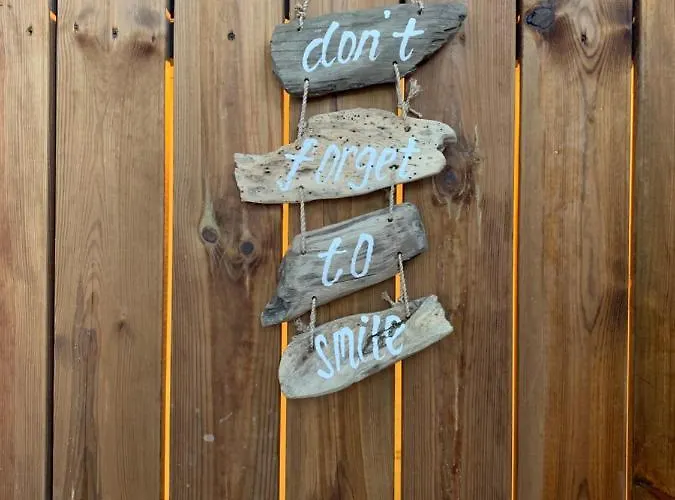 don't
forget
to
smile